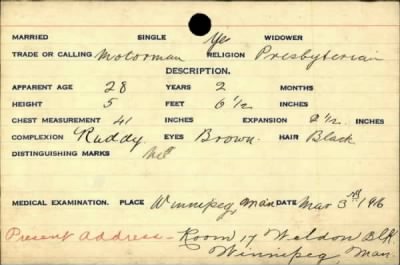 MARRIED SINGLE Yes WIDOWER
TRADE OR CALLING Motorman RELIGION Presbyterian
DESCRIPTION.
APPARENT AGE 28 YEARS 2 MONTHS
HEIGHT 5 FEET 6 1/2 INCHES
CHEST MEASUREMENT 41 INCHES EXPANSION 2 1/2 INCHES
COMPLEXION Ruddy. EYES Brown. HAIR Black
DISTINGUISHING MARKS Nil
MEDICAL EXAMINATION. PLACE Winnipeg, Man DATE Mar 3rd 1916
Present Address - Room 17 Weldon Blk.
Winnipeg, Man.